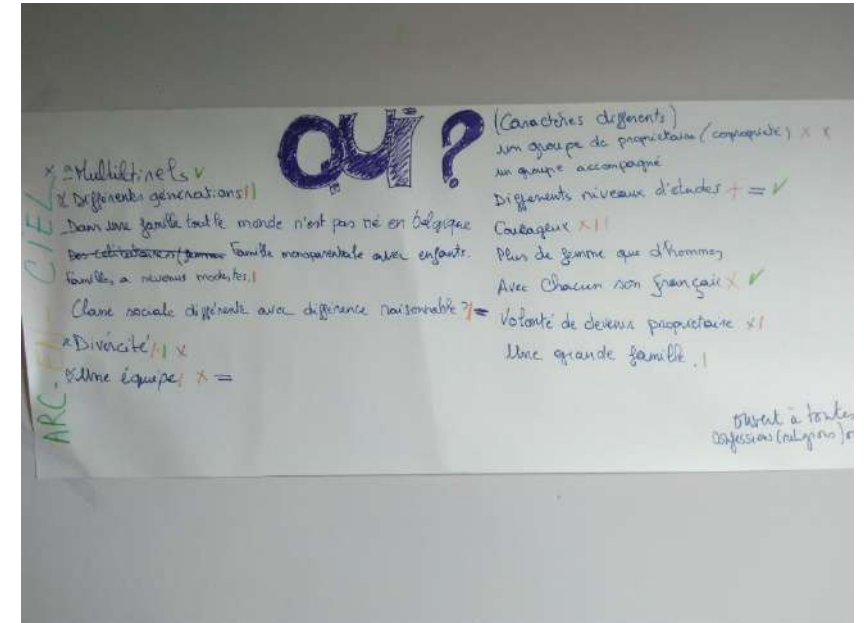 QUi ?
ARC-EN-CIEL
Multilturels
Différentes générations
Dans une famille tout le monde n'est pas né en Belgique
Famille monoparentale avec enfants.
Familles a revenus modestes.
Classe sociale différente avec différence raisonnable ?
Divércité
Une équipe
(Caractères différents)
un groupe de propriétaire (copropriété)
un groupe accompagné
Différents niveaux d'études + =
Courageux
Plus de femme que d'hommes
Avec Chacun son français
Volonté de devenir propriétaire
Une grande famille.
Ouvert à toutes
confessions (religions)